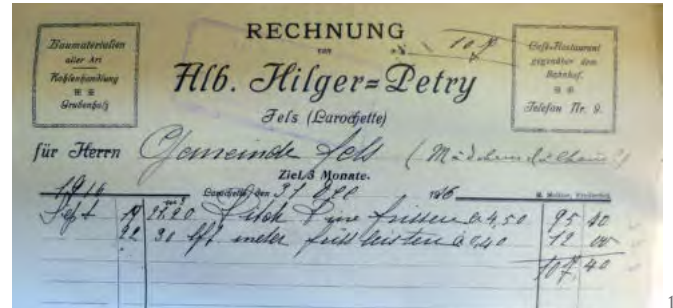 RECHNUNG
von
107
Baumaterialien
aller Art
Kohlenhandlung
Grubenholz
Alb. Hilger=Petry
Fels (Larochette)
Café-Restaurant
gegenüber dem
Bahnhof.
Telefon Nr. 9.
für Herrn Gemeinde Fels (Mädchenschulhaus)
Ziel 3 Monate.
1916 Larochette, den 31 Dez 1916
Sept 19 21.20 Pitch Pine friesen à 4,50 95 40
22 30 lfst meter fussleisten à 0,40 12 00
107,40
1